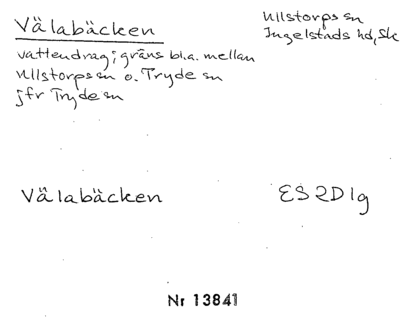 Välabäcken
Ullstorps sn
Ingelstads hd, Sk
vattendrag; gräns bl.a. mellan
Ullstorps sn o. Tryde sn
jfr Tryde sn
Välabäcken
ES2D1g
Nr 13841